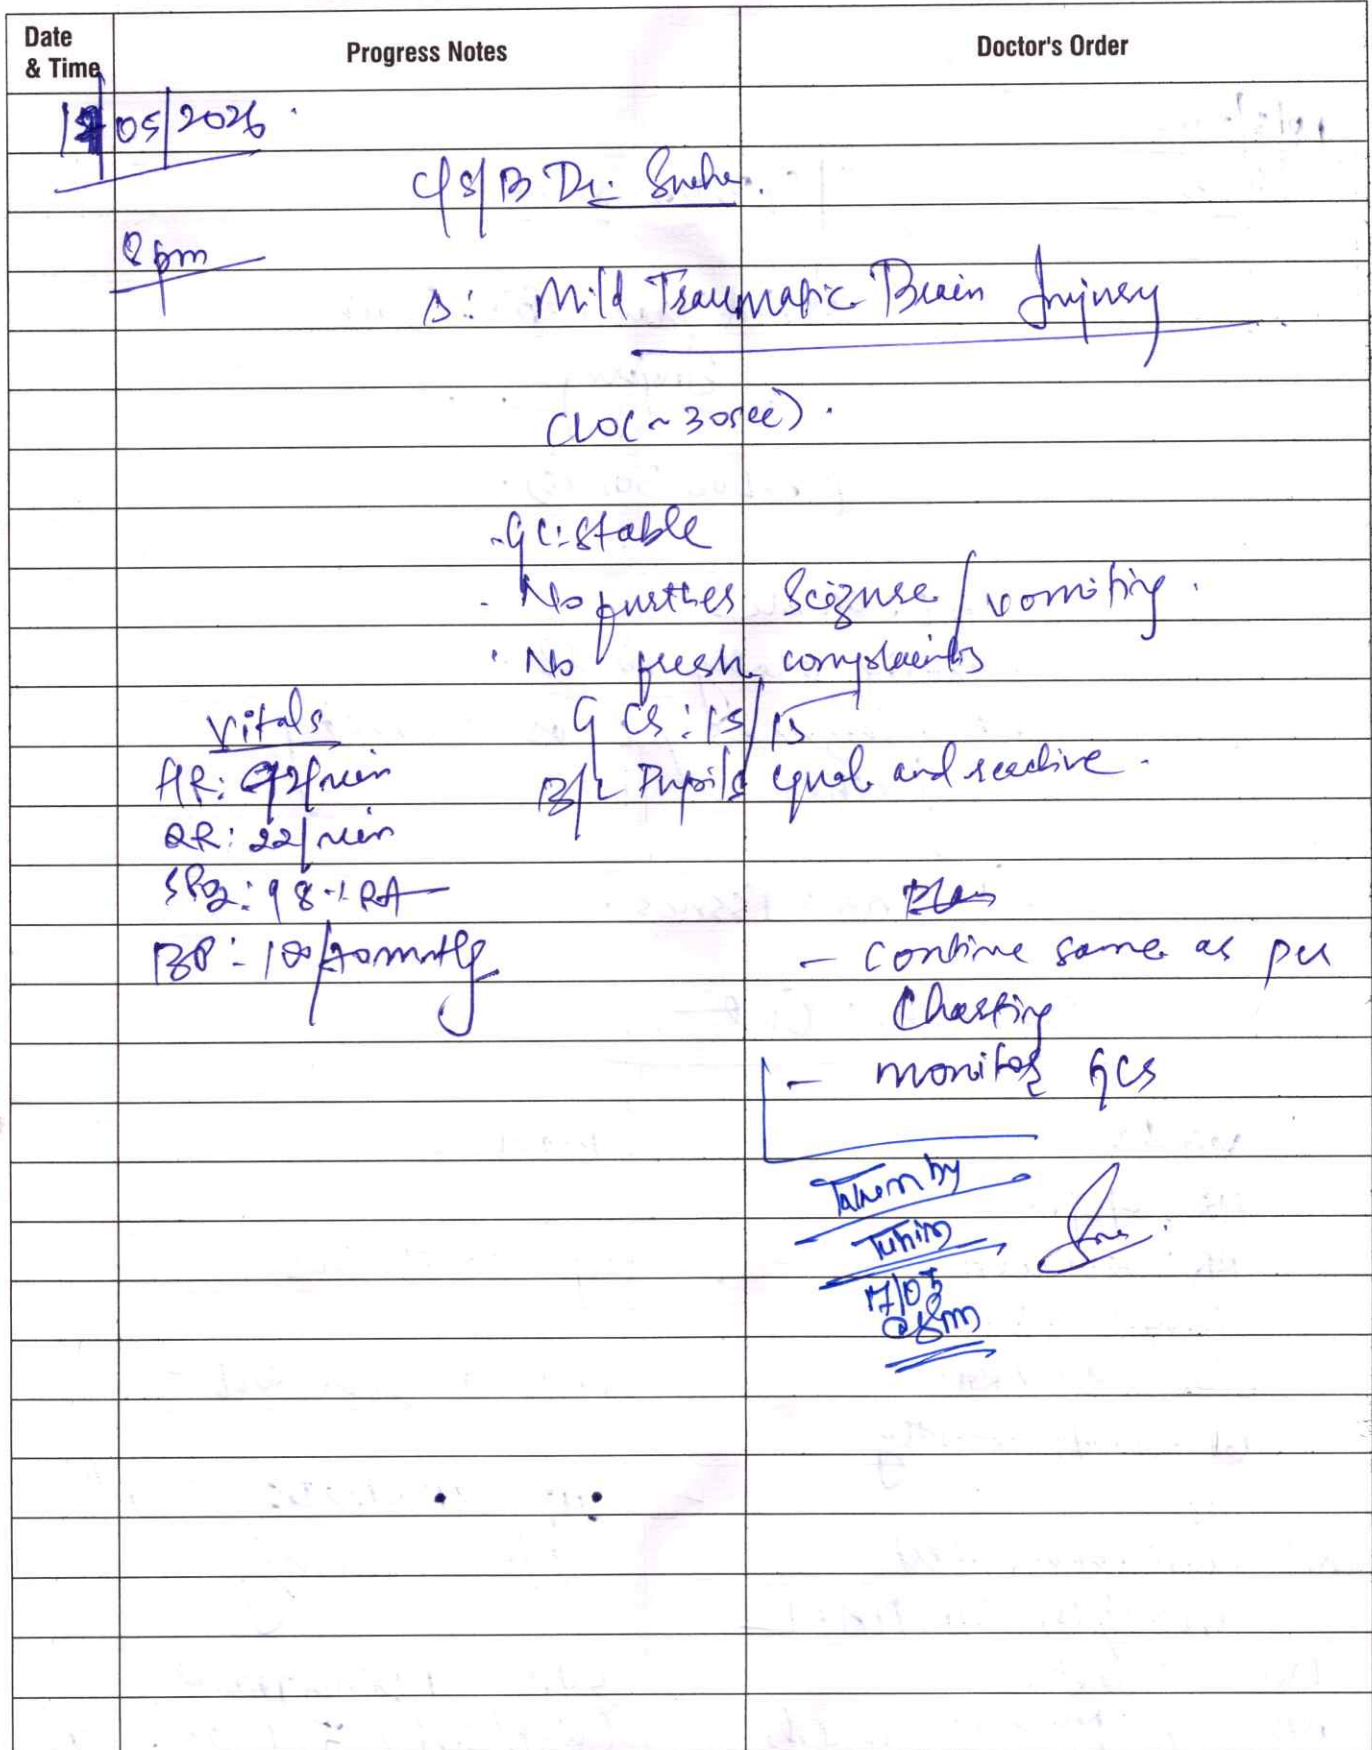 Date & Time
Progress Notes
Doctor's Order
17/05/2026
C/S/B Dr. Sneha.
8pm
Δ: Mild Traumatic Brain Injury
(LOC ~ 30sec).
- GC: Stable
- No further Seizure / vomiting.
- No fresh complaints
Vitals
GCS: 15/15
HR: 92/min
B/L Pupils equal and reactive.
RR: 22/min
SPO2: 98% RA
Plan
BP: 100/70mmHg
- Continue same as per
Charting
- monitor GCS
Taken by
Tuhin
17/05
@8pm